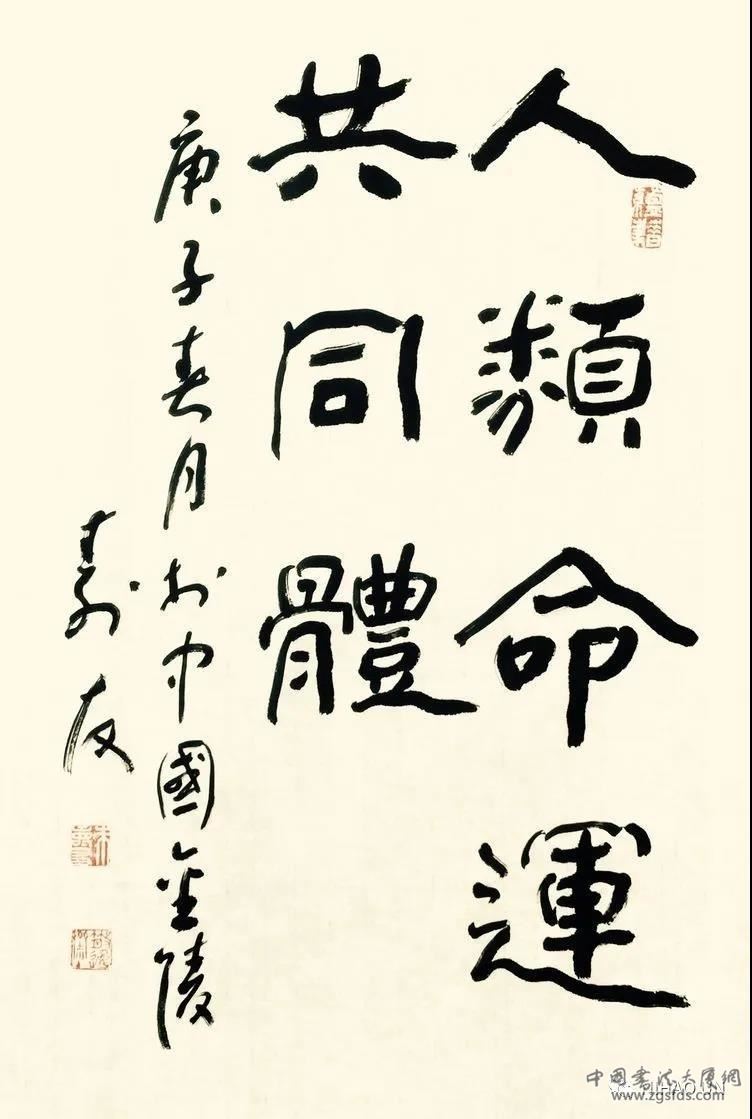 人類命運
共同體
庚子春月於中國金陵
壽友
中国书法大厦網
www.zgsfds.com